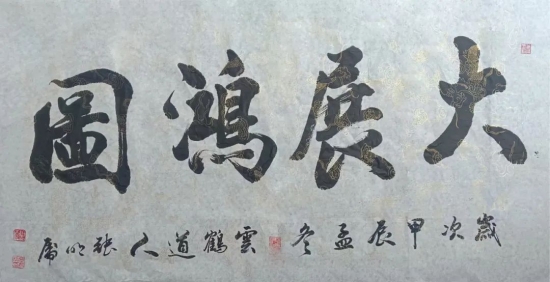 大展鴻圖
歲次甲辰孟冬 雲鶴道人張